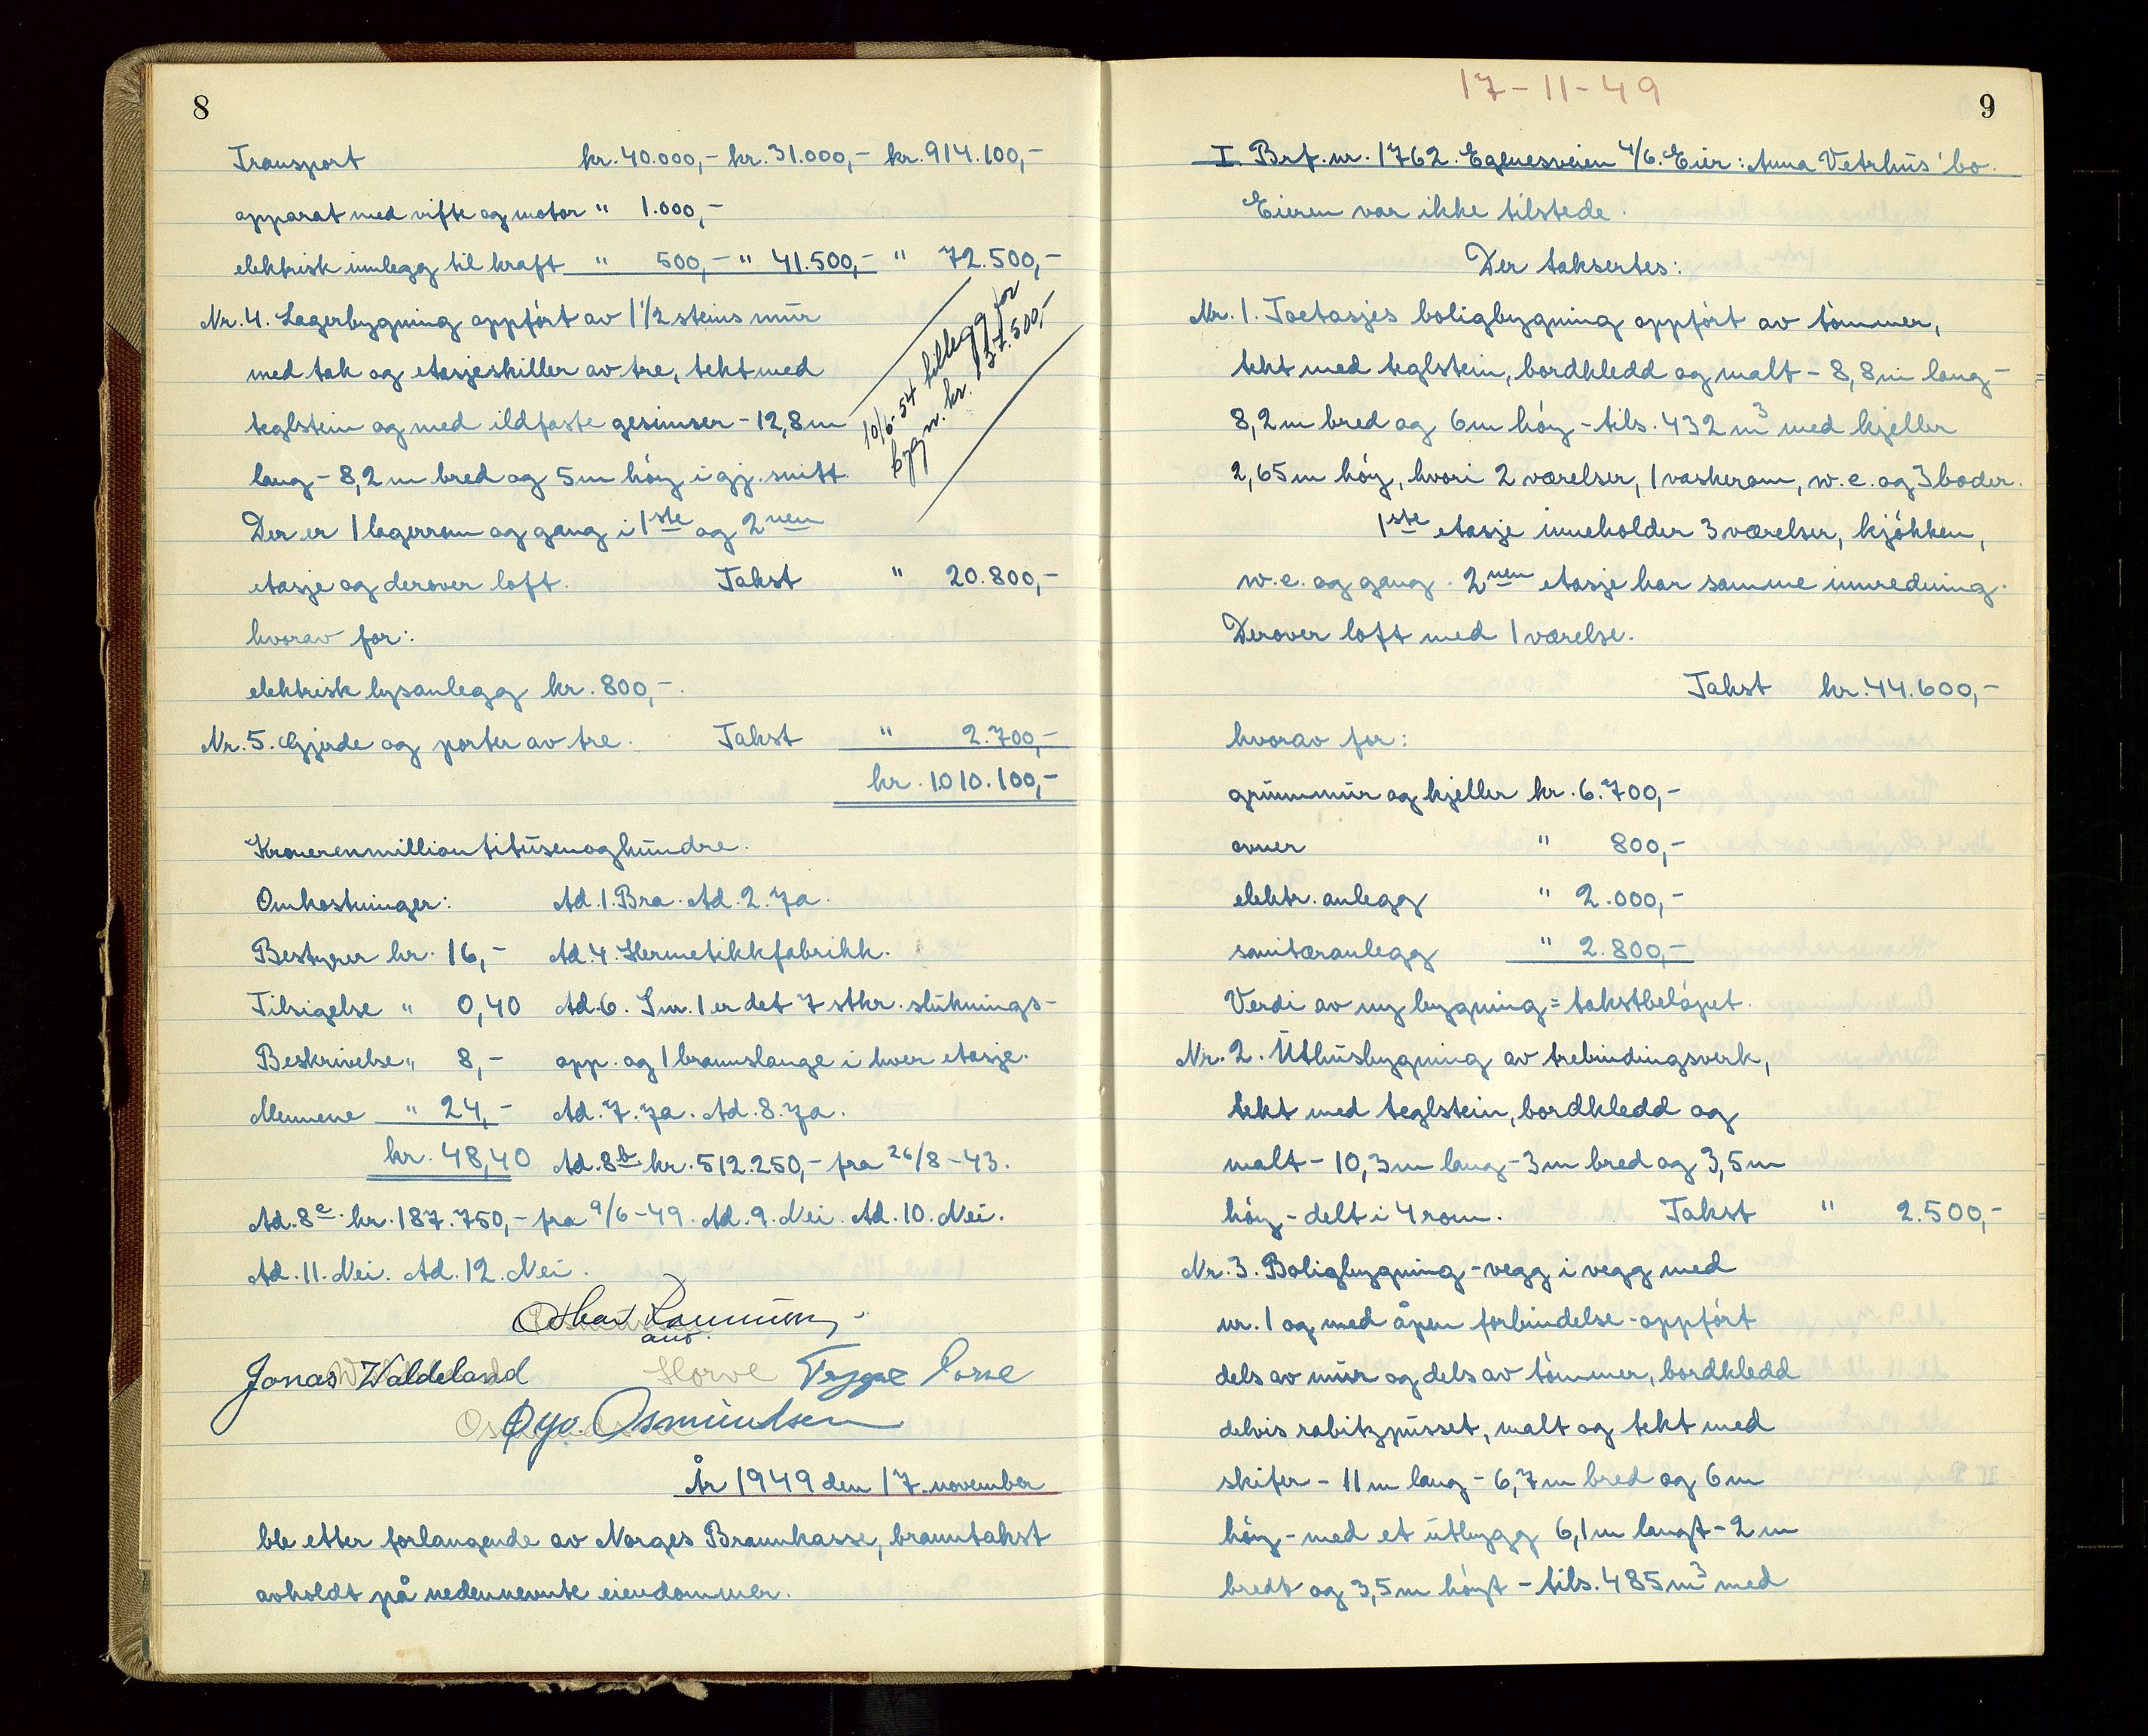 8
Transport kr. 40.000,- kr. 31.000,- kr. 914.100,-
apparat med vifte og motor " 1.000,-
elektrisk innlegg til kraft " 500,- " 41.500,- " 72.500,-
Nr. 4. Lagerbygning oppført av 1 1/2 steins mur
med tak og etasjeskiller av tre, tekt med
teglstein og med ildfaste gesimser - 12,8 m
lang - 8,2 m bred og 5 m høy i gj. snitt
10/6-54 tillegg for
bygn. kr. 137.500,-
Der er 1 lagerrom og gang i 1ste og 2nen
etasje og derover loft. Takst " 20.800,-
hvorav for:
elektrisk lysanlegg kr. 800,-.
Nr. 5. Gjerde og porter av tre. Takst " 2.700,-
kr. 1010.100,-
Kronerenmilliontitusenoghundre.
Omkostninger: Ad. 1. Bra. Ad. 2. Ja.
Bestyrer kr. 16,- Ad. 4. Hermetikkfabrikk.
Tilsigelse " 0,40 Ad. 6. I nr. 1 er det 7 stkr. sluknings-
Beskrivelse " 8,- app. og 1 brannslange i hver etasje.
Mennene " 24,- Ad. 7. Ja. Ad. 8. Ja.
kr. 48,40 Ad. 8b. kr. 512.250,- fra 26/8-43.
Ad. 8c. kr. 187.750,- fra 9/6-49. Ad. 9. Nei. Ad. 10. Nei.
Ad. 11. Nei. Ad. 12. Nei.
Jonas Waldeland Trygve
Osmundsen
År 1949 den 17. november
ble etter forlangende av Norges Brannkasse, branntakst
avholdt på nedennevnte eiendommer.
17-11-49
9
I. Brf. nr. 1762. Egenesveien 4/6. Eier: Anna Vetrhus' bo.
Eieren var ikke tilstede.
Der taksertes:
Nr. 1. Toetasjes boligbygning oppført av tømmer,
tekt med teglstein, bordkledd og malt - 8,8 m lang -
8,2 m bred og 6 m høy - tils. 432 m3 med kjeller
2,65 m høy, hvori 2 værelser, 1 vaskerom, w.c. og 3 boder.
1ste etasje inneholder 3 værelser, kjøkken,
w.c. og gang. 2nen etasje har samme innredning.
Derover loft med 1 værelse.
Takst kr. 44.600,-
hvorav for:
grunnmur og kjeller kr. 6.700,-
ovner " 800,-
elektr. anlegg " 2.000,-
sanitæranlegg " 2.800,-
Verdi av ny bygning = takstbeløpet.
Nr. 2. Uthusbygning av trebindingsverk,
tekt med teglstein, bordkledd og
malt - 10,3 m lang - 3 m bred og 3,5 m
høy - delt i 4 rom. Takst " 2.500,-
Nr. 3. Boligbygning - vegg i vegg med
nr. 1 og med åpen forbindelse - oppført
dels av mur og dels av tømmer, bordkledd
delvis rabitzpusset, malt og tekt med
skifer - 11 m lang - 6,7 m bred og 6 m
høy - med et utbygg 6,1 m langt - 2 m
bredt og 3,5 m høyt - tils. 485 m3 med